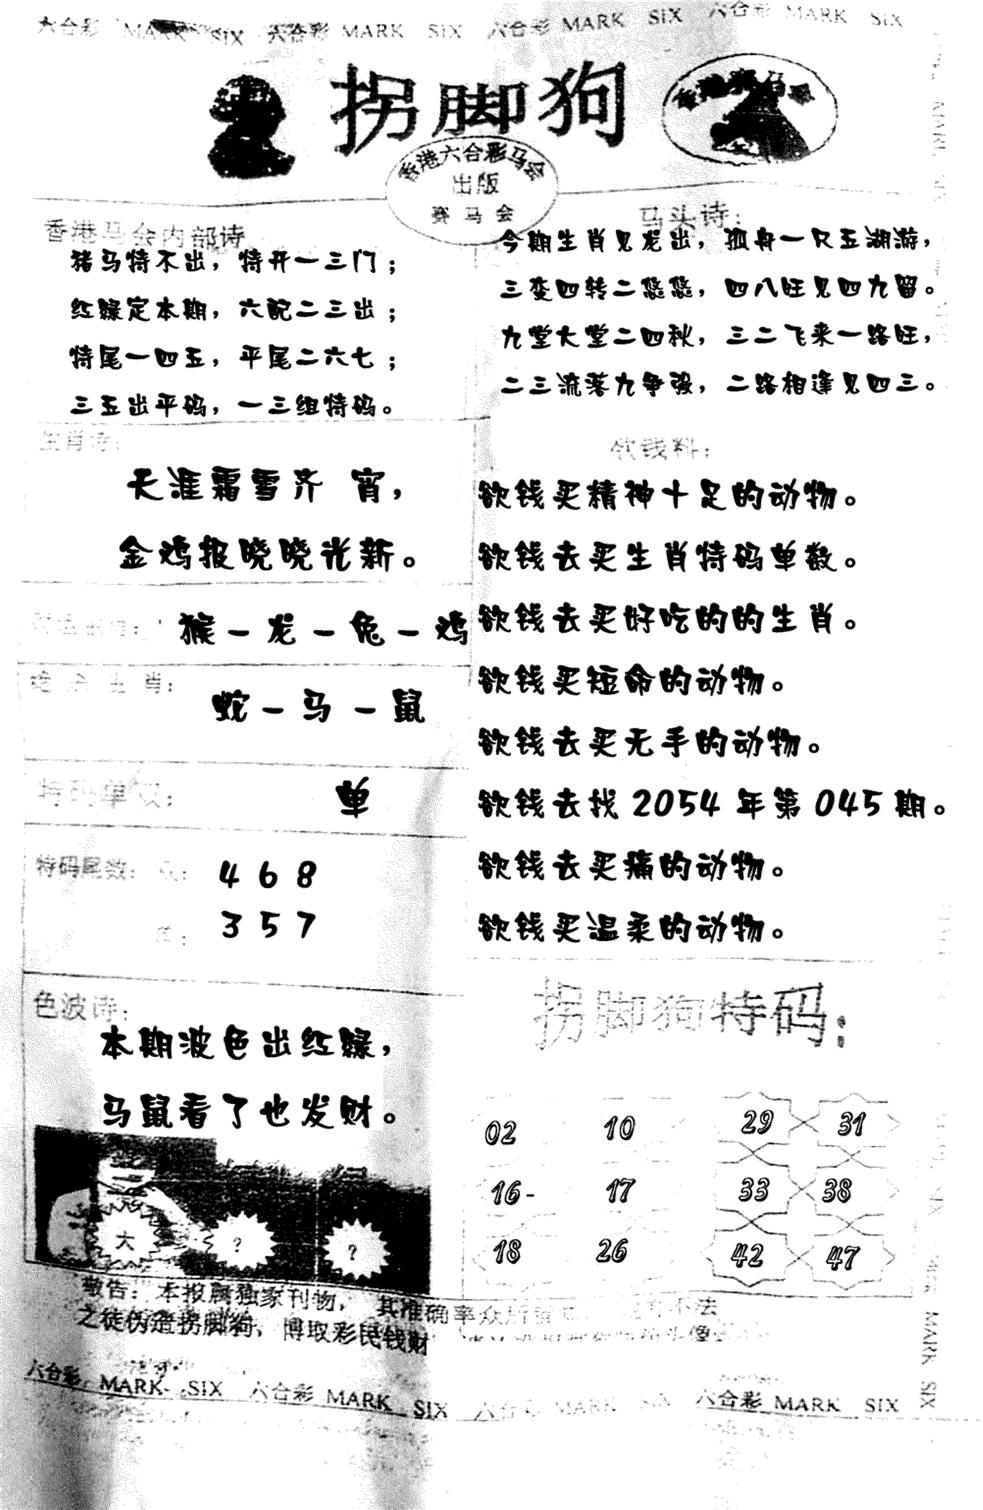 六合彩 MARK SIX 六合彩 MARK SIX 六合彩 MARK SIX 六合彩 MARK SIX
拐脚狗
香港赛马会
香港六合彩马会
出版
赛马会
香港马会内部诗
猪马特不出，特开一三门；
红绿定本期，六配二三出；
特尾一四五，平尾二六七；
三五出平码，一三组特码。
马头诗：
今期生肖见龙出，孤舟一只五湖游，
三变四转二悠悠，四八旺见四九留。
九堂大堂二四秋，三二飞来一路旺，
二三流落九争强，二路相逢见四三。
生肖诗：
天涯霜雪齐 宵，
金鸡报晓晓光新。
猴－龙－兔－鸡
绝 杀 生 肖：
蛇－马－鼠
特码单双：
单
特码尾数： 双： 4 6 8
单： 3 5 7
色波诗：
本期波色出红绿，
马鼠看了也发财。
大 ？ ？
欲钱料：
欲钱买精神十足的动物。
欲钱去买生肖特码单数。
欲钱去买好吃的的生肖。
欲钱买短命的动物。
欲钱去买无手的动物。
欲钱去找 2054 年第 045 期。
欲钱去买痛的动物。
欲钱买温柔的动物。
拐脚狗特码：
02 10 29 31
16- 17 33 38
18 26 42 47
敬告：本报属独家刊物， 其准确率众所 不法
之徒伪造拐脚狗，博取彩民钱财
六合彩 MARK SIX 六合彩 MARK SIX 六合彩 MARK SIX 六合彩 MARK SIX
MARK SIX